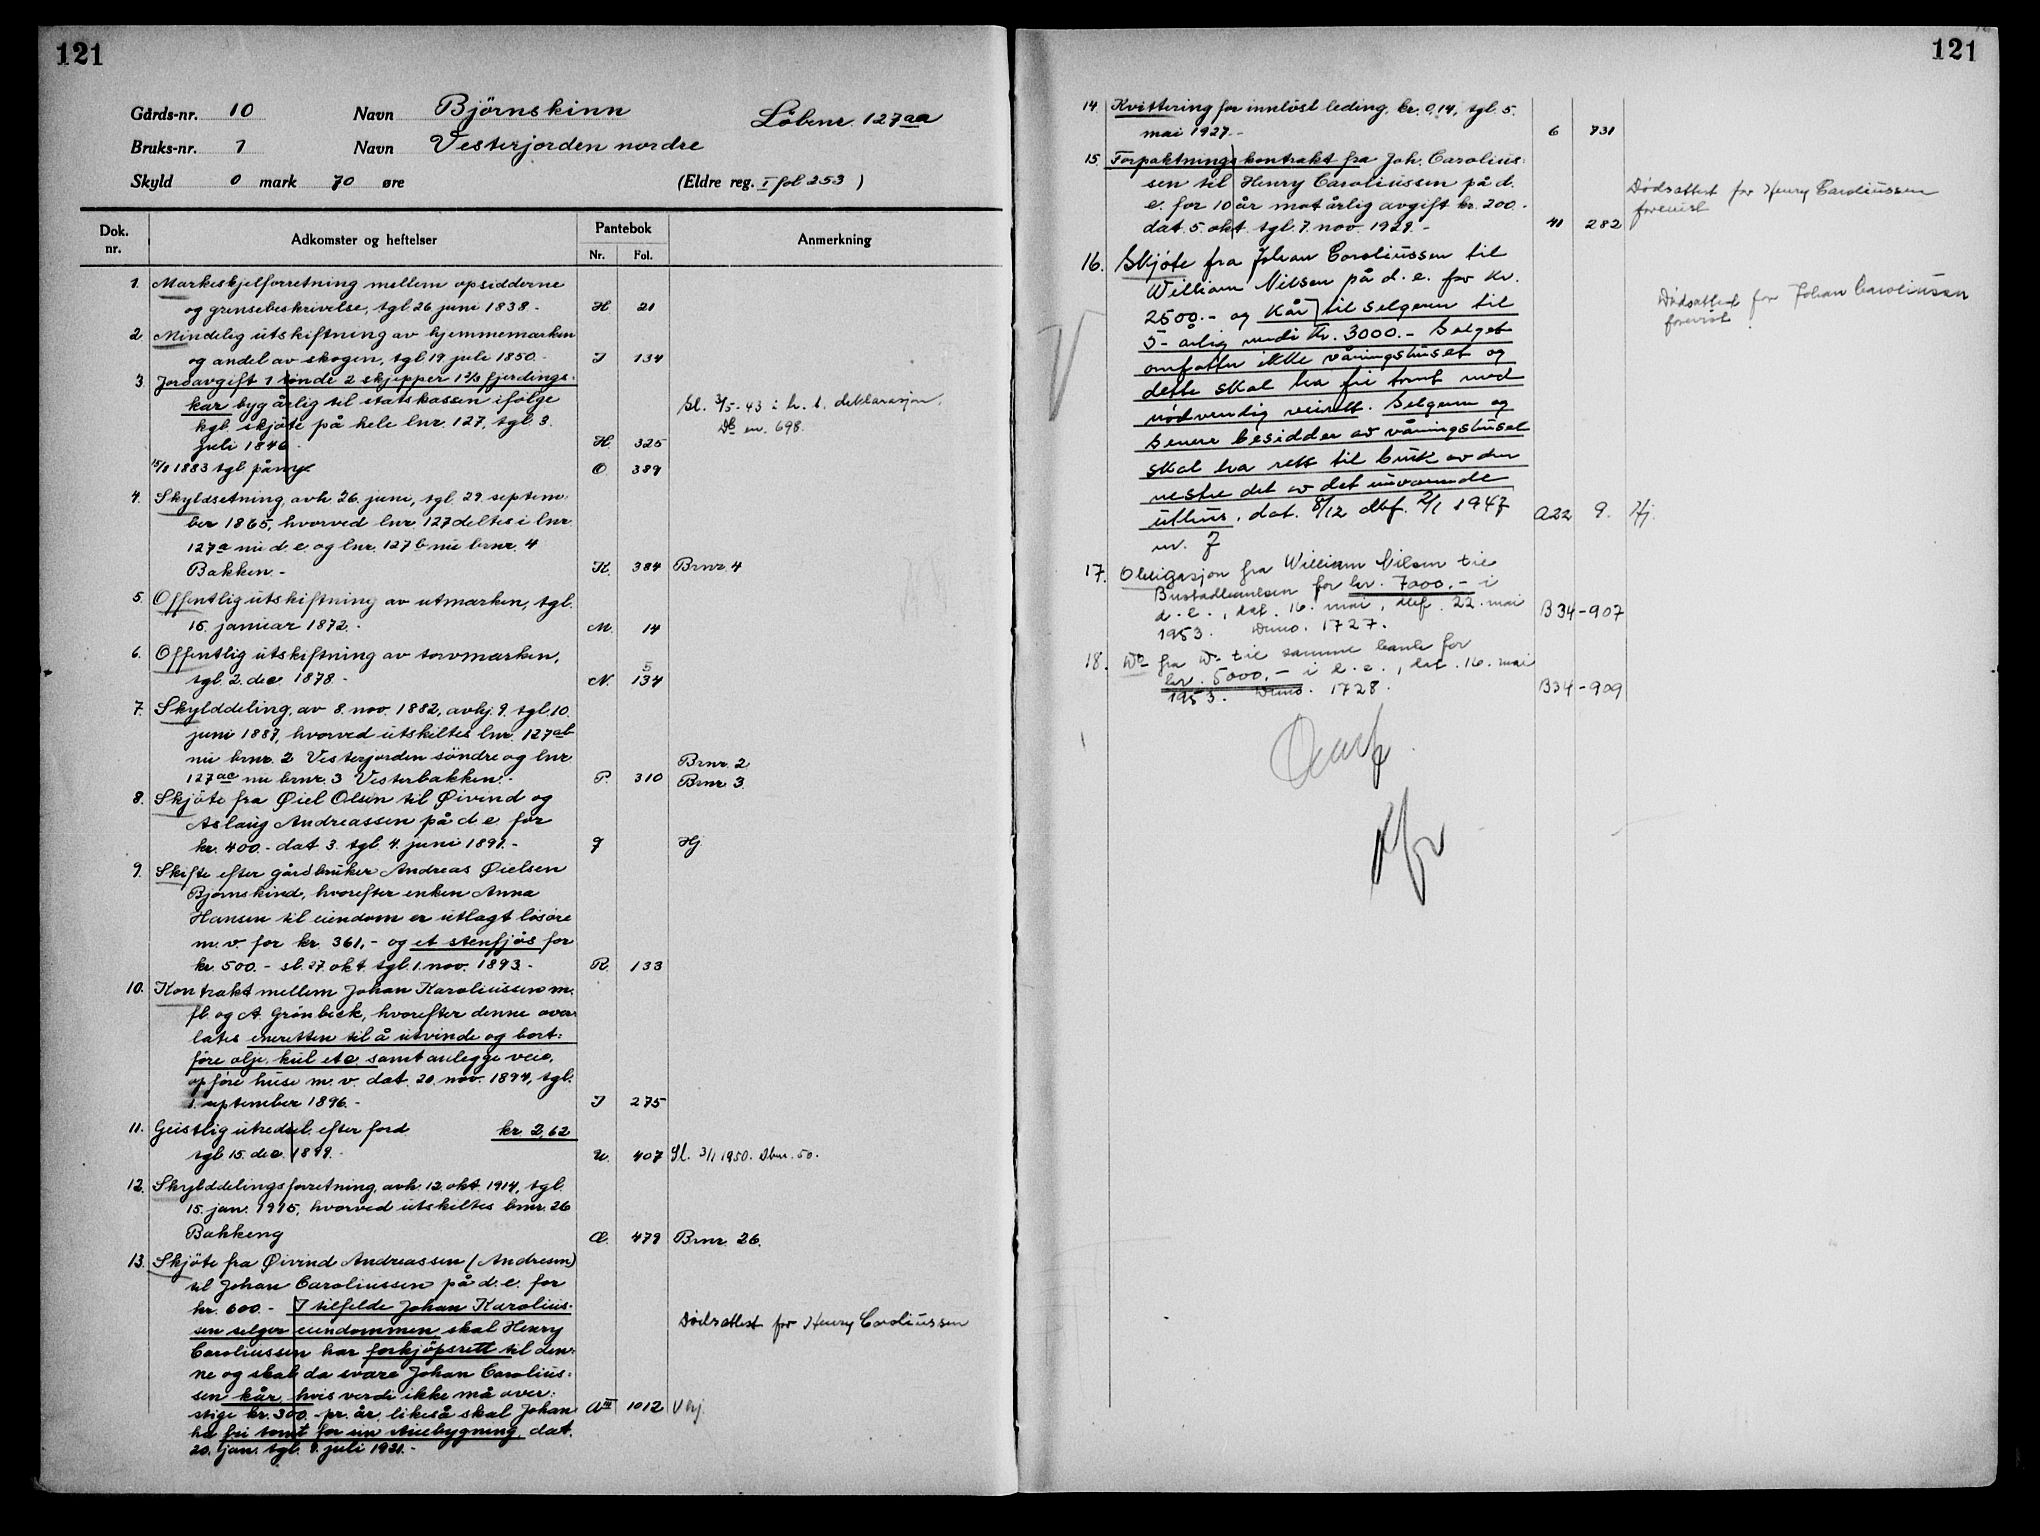 121
Gårds-nr. 10 Navn Björnskinn Löbenr. 127aa
Bruks-nr. 1 Navn Vesterjorden nordre
Skyld 0 mark 70 øre (Eldre reg. I fol 253)
Dok. nr. Adkomster og heftelser Pantebok Anmerkning
Nr. Fol.
1. Markeskjelforretning mellem opsidderne
og grensebeskrivelse, tgl 26 juni 1838.- H 21
2 Mindelig utskiftning av hjemmemarken
og andel av skogen, tgl 19. juli 1850.- I 134
3. Jordavgift 1 tönde 2 skjepper 1 2/3 fjerdings-
kar byg årlig til statskassen ifölge Sl. 3/5-43 i h. t. deklarasjon.
kgl. skjöte på hele lnr. 127, tgl. 3. Db nr. 698.
juli 1846.- H. 325
15/8 1883 tgl. pånye O. 389
4. Skyldsetning avh 26. juni, tgl. 29. septem-
ber 1865, hvorved lnr. 127 deltes i lnr.
127a nu d. e. og lnr. 127b nu brnr. 4
Bakken.- K. 384 Brnr. 4
5. Offentlig utskiftning av utmarken, tgl.
15. januar 1872.- M. 14
6. Offentlig utskiftning av torvmarken,
tgl. 2. dec. 1878.- N. 134
7. Skylddeling, av 8. nov. 1882, avhj. 9. tgl. 10.
juni 1887, hvorved utskiltes lnr. 127ab
nu brnr. 2 Vesterjorden söndre og lnr. Brnr. 2
127ac nu brnr. 3 Vesterbakken.- P. 310 Brnr. 3.
8. Skjöte fra Øiel Olsen til Øivind og
Aslaug Andreassen på d. e. for
kr. 400.- dat 3. tgl. 4. juni 1891.- 9 Hj
9. Skifte efter gårdbruker Andreas Øielsen
Bjørnskind, hvorefter enken Anna
Hansen til eiendom er utlagt lösöre
m. v. for kr. 361,- og et stenfjös for
kr. 500.- sl. 27. okt. tgl. 1. nov. 1893.- R. 133
10. Kontrakt mellem Johan Karoliussen m.
fl. og A. Grönbeck, hvorefter denne over-
lates eneretten til å utvinde og bort-
føre olje, kul etc samt anlegge veie,
opføre huse m. v. dat. 20. nov. 1894, tgl.
1. september 1896.- I 275
11. Geistlig utredsel efter ford. kr. 2,62
tgl. 15. dec. 1899.- U. 407 Sl. 3/1 1950. Dbnr. 50.
12. Skylddelingsforretning, avh. 12. okt. 1914, tgl.
15. jan. 1915, hvorved utskiltes brnr. 26
Bakkeng Æ. 479 Brnr. 26.
13. Skjöte fra Øivind Andreassen (Andresen)
til Johan Caroliussen på d. e. for
kr. 600.- I tilfelde Johan Karolius-
sen selger eiendommen skal Henry Dödsattest for Henry Caroliussen
Caroliussen har forkjöpsrett til den-
ne og skal da svare Johan Carolius-
sen kår, hvis verdi ikke må over-
stige kr. 300.- pr. år, likeså skal Johan AIII 1012 Vhj.
ha fri tomt for en stuebygning, dat.
20. jan. tgl. 9. juli 1921.-
121
14. Kvittering for innlöst leding, kr. 0,14, tgl. 5.
mai 1927.- 6 731
15 Forpaktningskontrakt fra Joh. Carolius-
sen til Henry Caroliussen på d. Dödsattest for Henry Caroliussen
e. for 10 år mot årlig avgift kr. 200.- forevist
dat. 5. okt. tgl. 7. nov. 1929.- 11 282
16. Skjöte fra Johan Caroliussen til
William Nilsen på d. e. for kr.
2500.- og kår til selgeren til Dödsattest for Johan Caroliussen
5-årlig verdi kr. 3000.- Salget forevist
omfatter ikke våningshuset og
dette skal ha fri tomt med
nödvendig veirett. Selgeren og
senere besidder av våningshuset
skal ha rett til bruk av den
vestre del av det nuværende
uthus, dat. 8/12 dbf. 2/1 1947 A22 9. Hj.
nr. 7
17. Obligasjon fra William Nilsen til
Bustadbanken for kr. 7000.- i
d. e., dat. 16. mai, dbf. 22. mai B34-907
1953. Dnro. 1727.
18. Do fra Do til samme bank for
kr. 5000.- i d. e., dat. 16. mai
1953. Dnro. 1728. B34-909